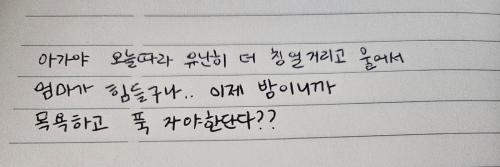 아가야 오늘따라 유난히 더 칭얼거리고 울에서
엄마가 힘들구나.. 이제 밤이니까
목욕하고 푹 자야한단다??